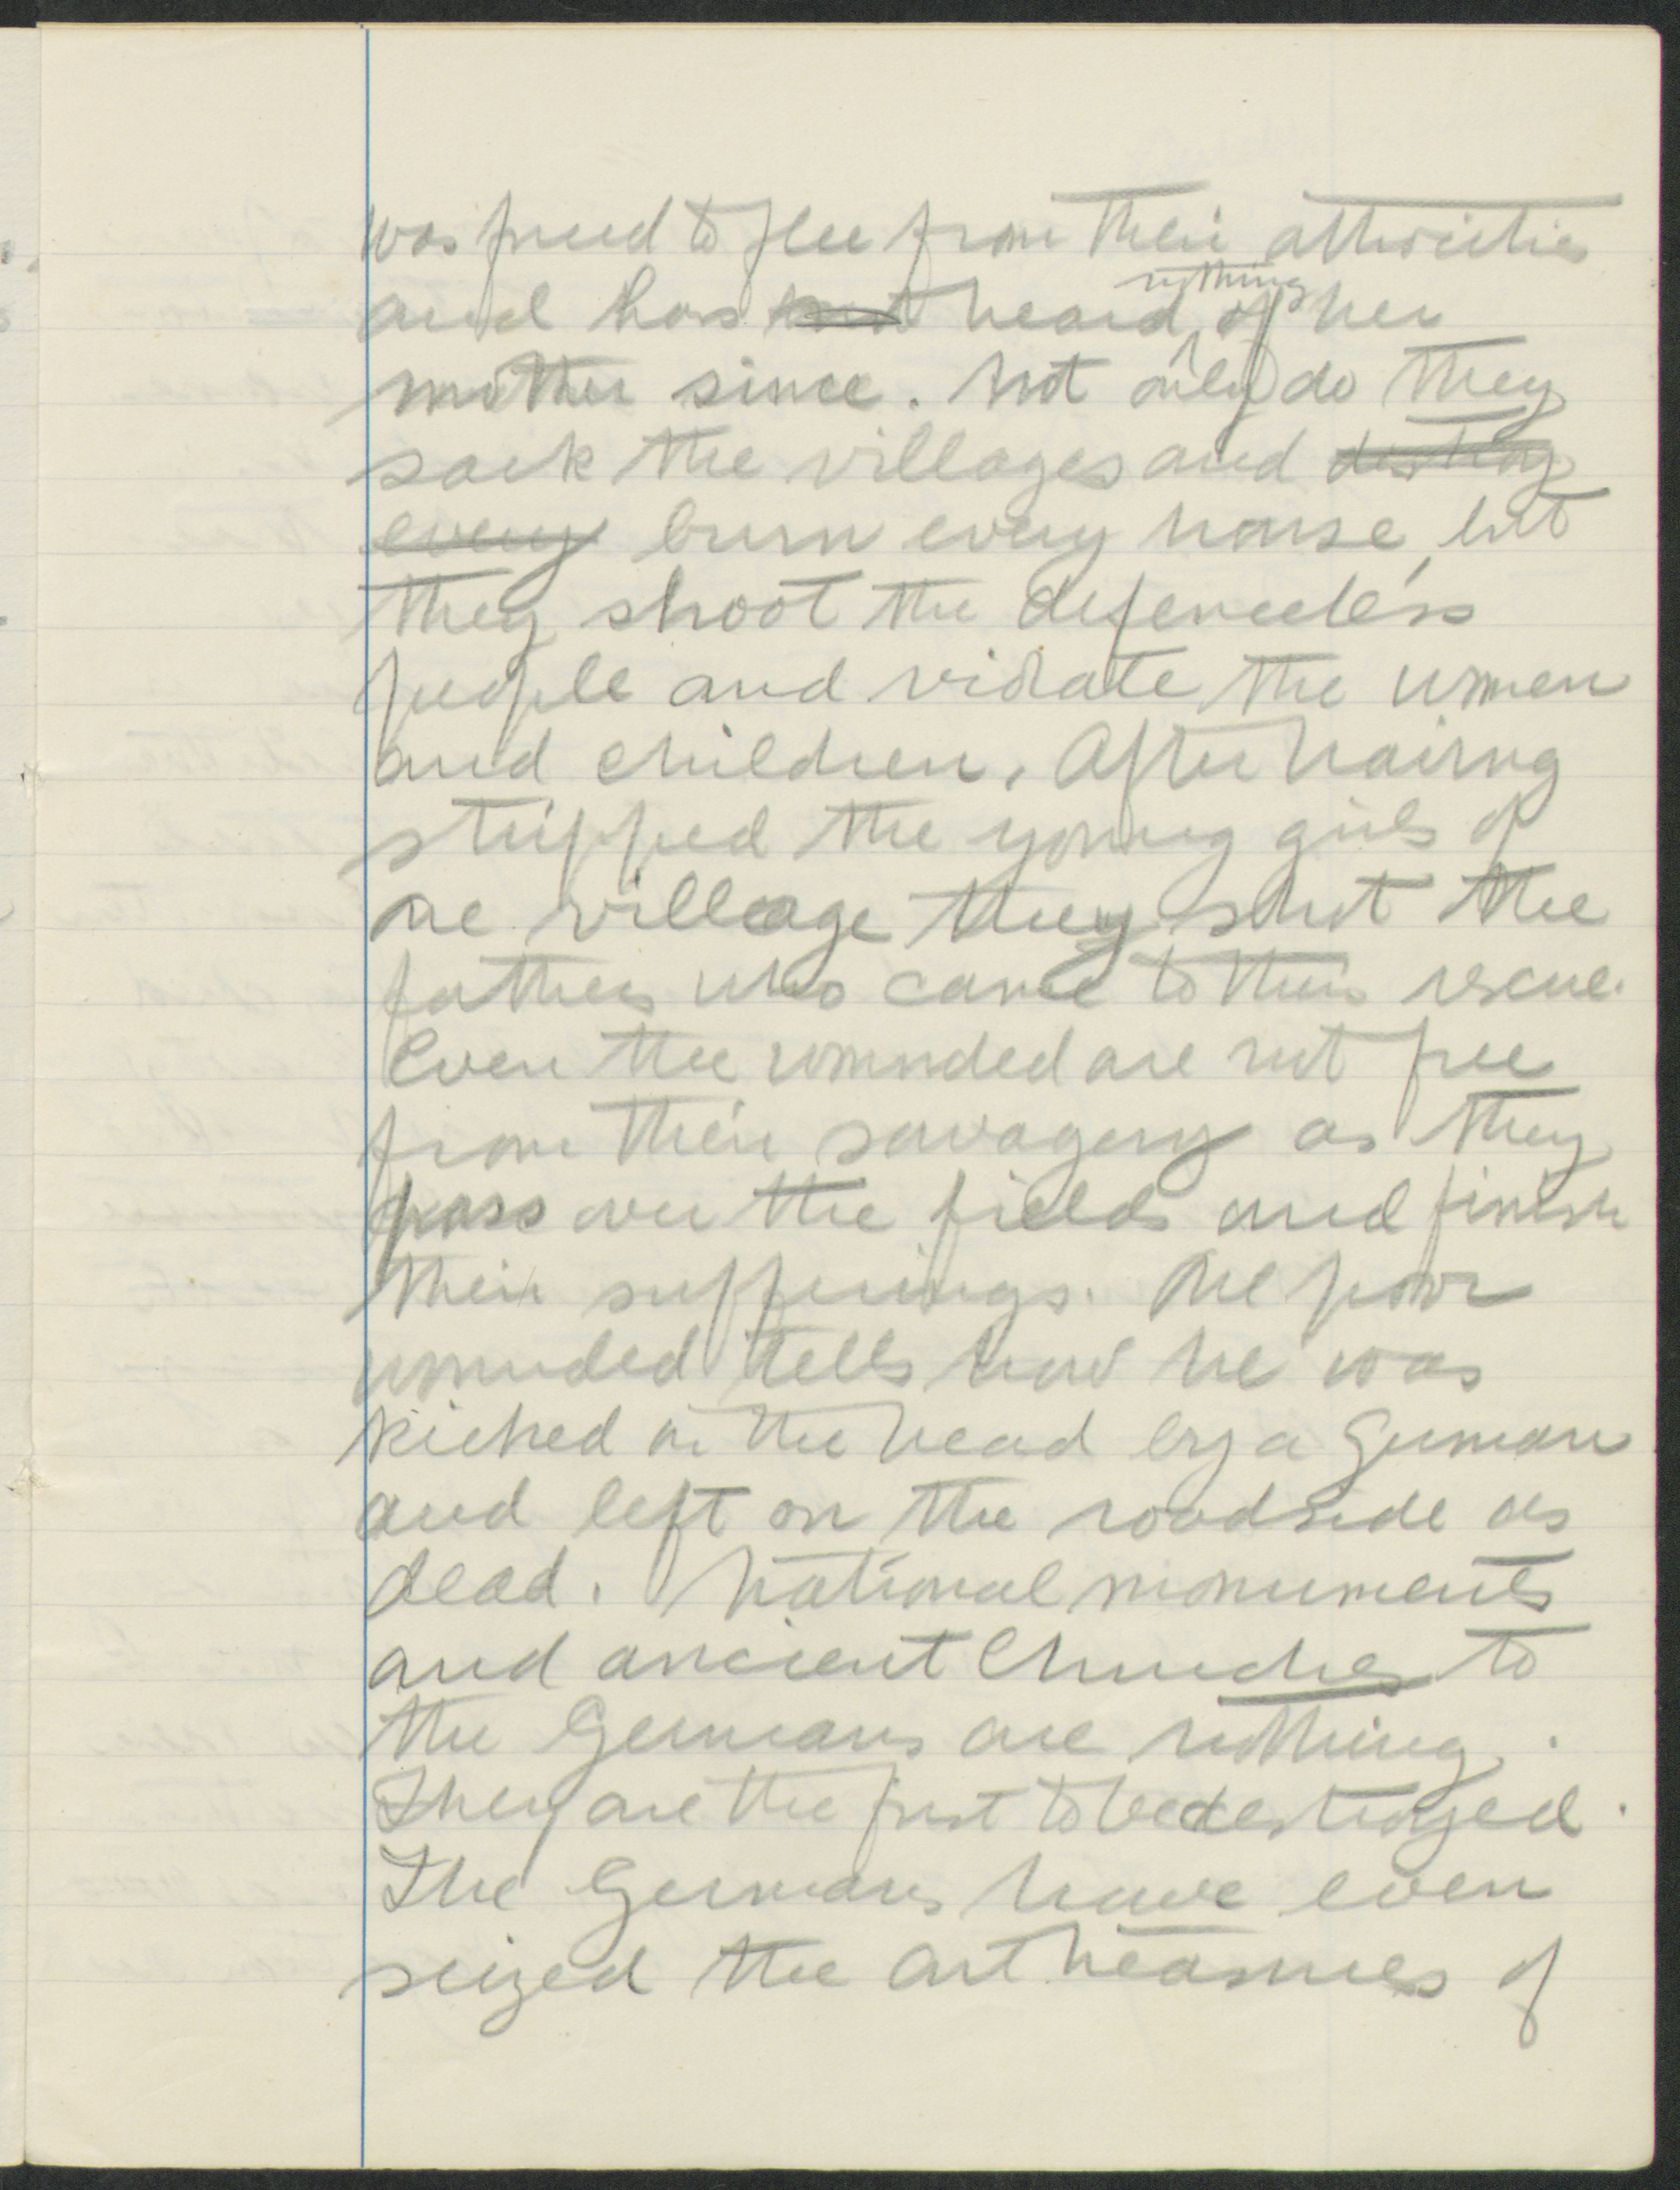 was forced to flee from their attrocities
and has not heard nothing of her
mother since. Not only do they
sack the villages and destroy
every burn every house, but
they shoot the defenceless
people and violate the women
and children. After having
stripped the young girls of
one village they shot the
fathers who came to their rescue.
Even the wounded are not free
from their savagery as they
pass over the fields and finish
their sufferings. One poor
wounded tells how he was
kicked in the head by a German
and left on the roadside as
dead. National monuments
and ancient Churches to
the Germans are nothing.
They are the first to be destroyed.
The Germans have even
seized the art treasures of